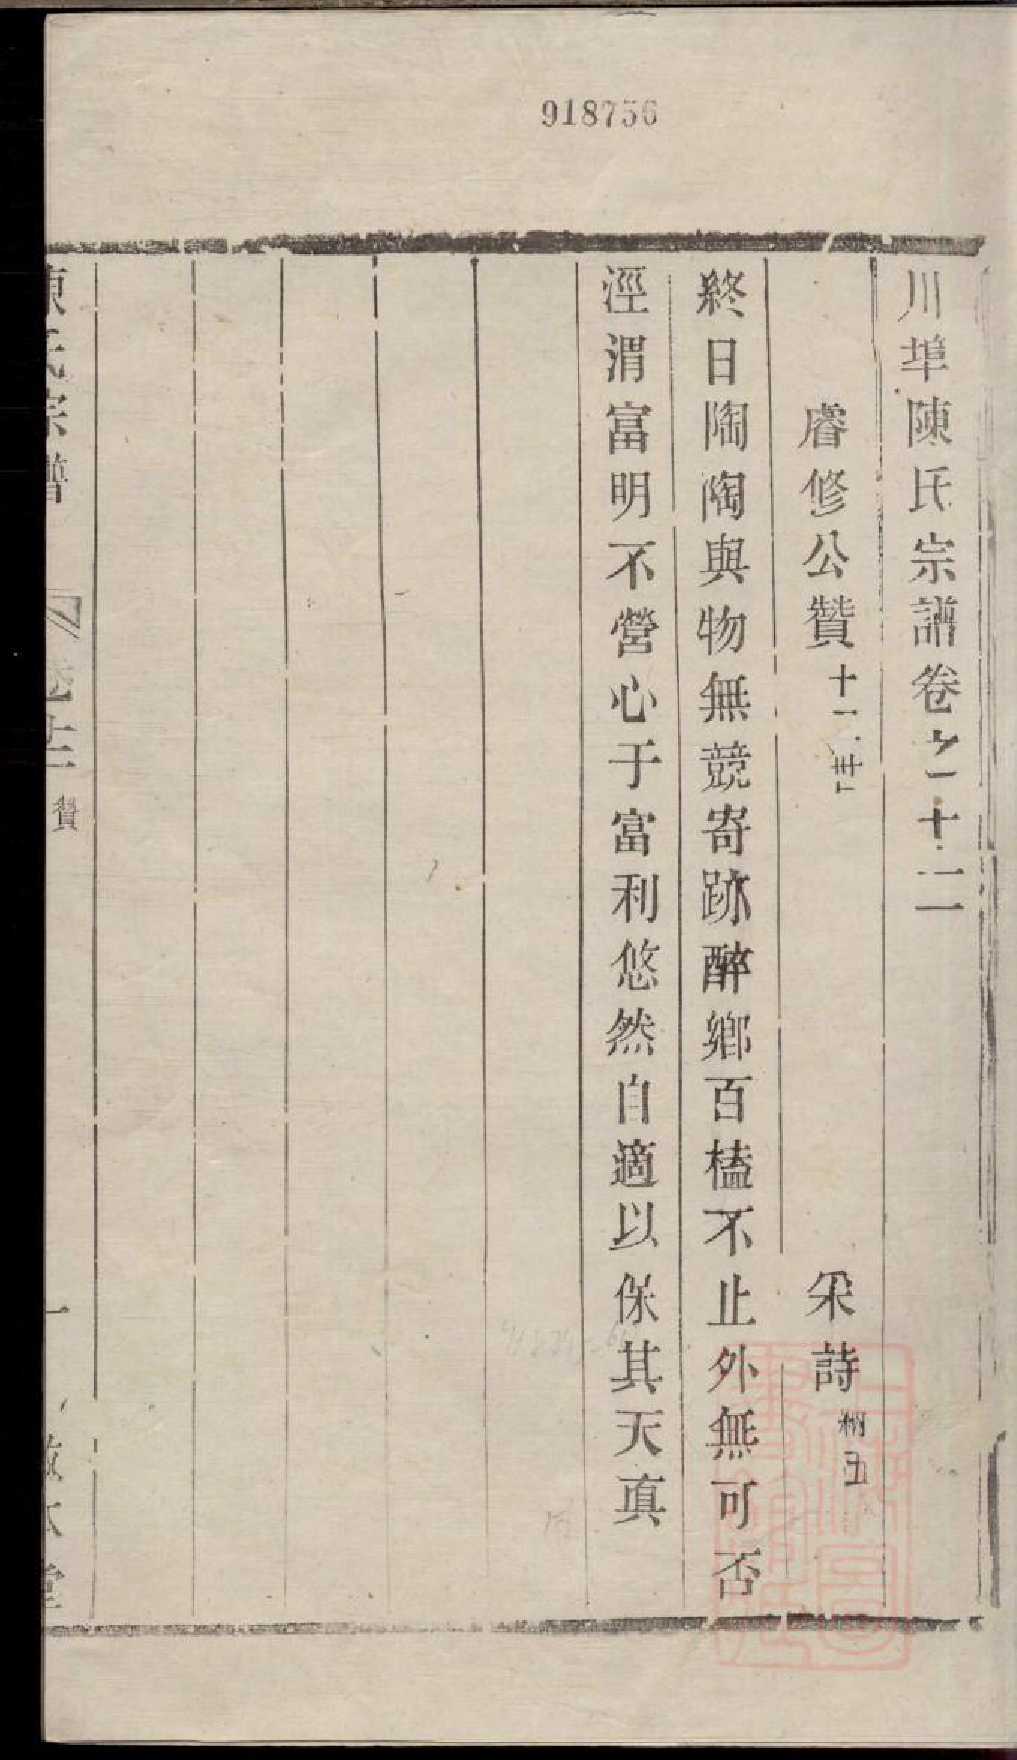 918756
川埠陳氏宗譜卷之十二
睿修公贊 十一
采詩 炳五
終日陶陶與物無競寄跡醉鄉百榼不止外無可否
涇渭富明不營心于富利悠然自適以保其天真
陳氏宗譜 卷十二 贊 一 敬本堂